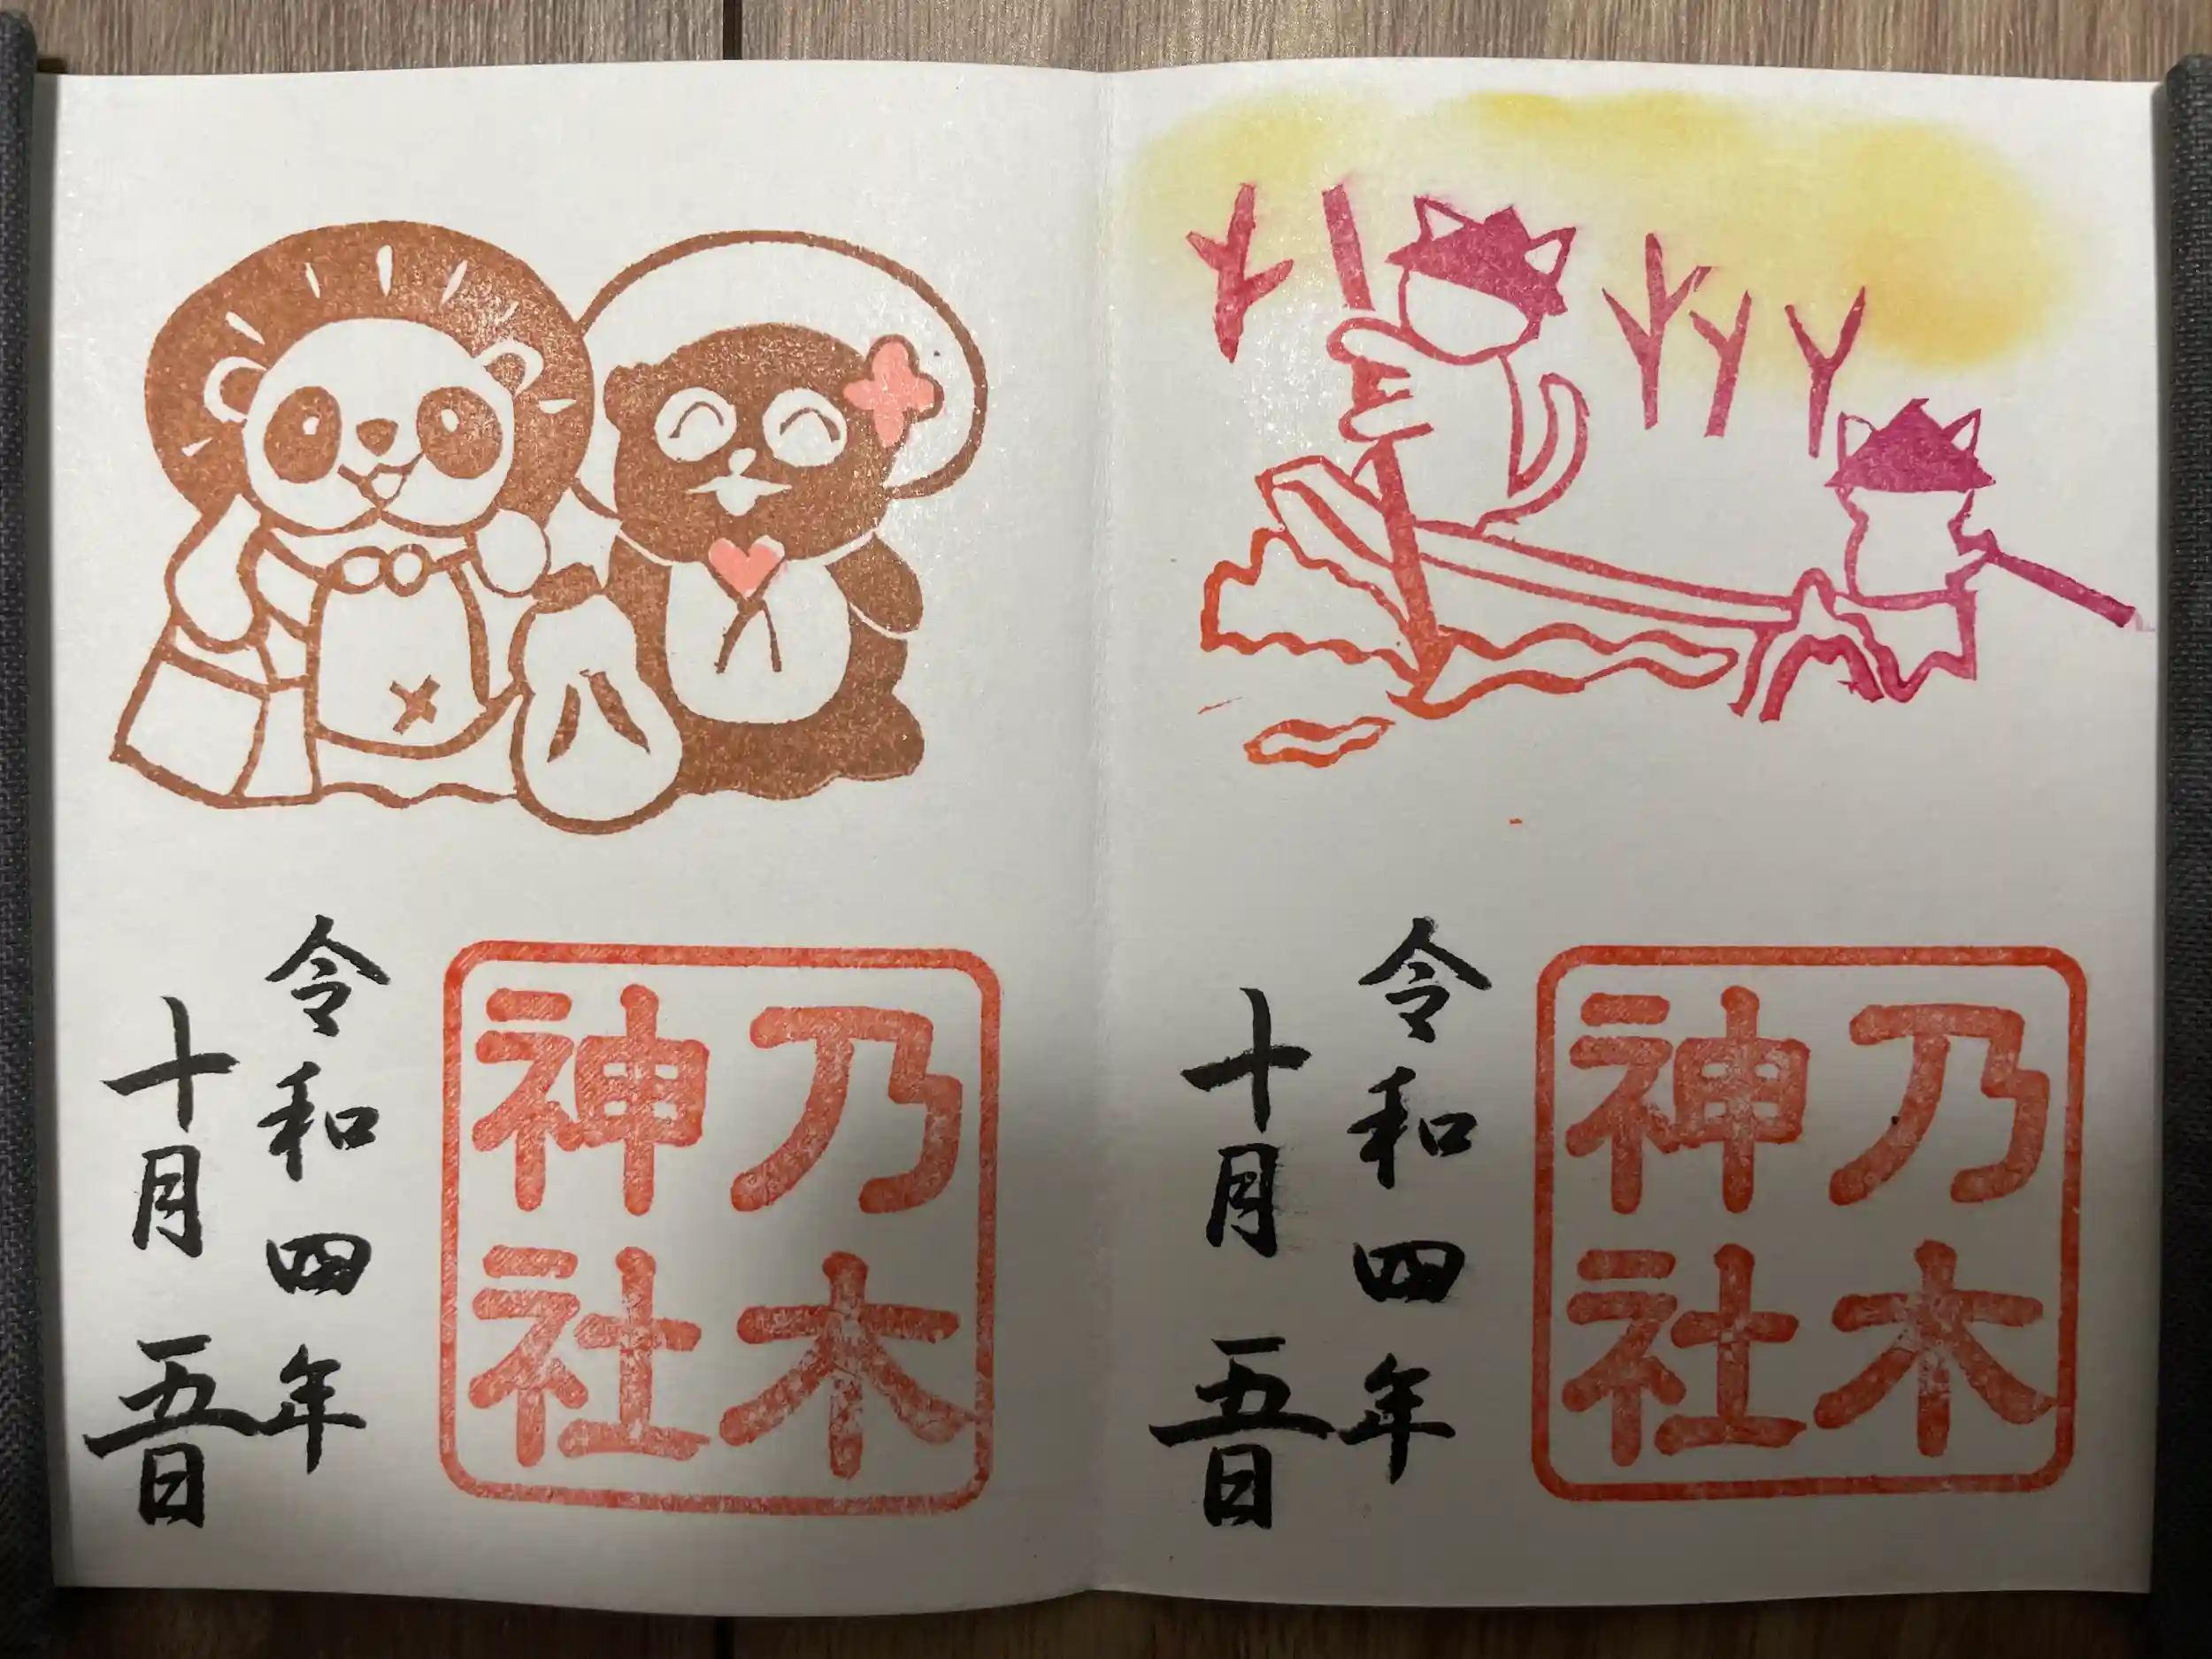 乃木
神社
令和四年
十月五日
乃木
神社
令和四年
十月五日
八